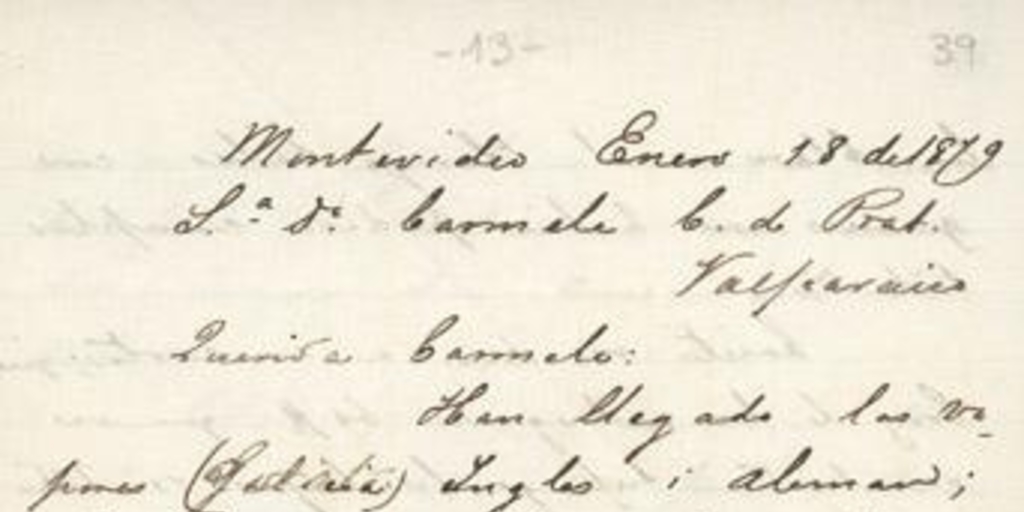 -13-
39
Montevideo Enero 18 de 1879
S.ª Dª Carmela C. de Prat.
Valparaiso
Querida Carmela:
Han llegado los va-
pores (Galicia) Ingles i Aleman;